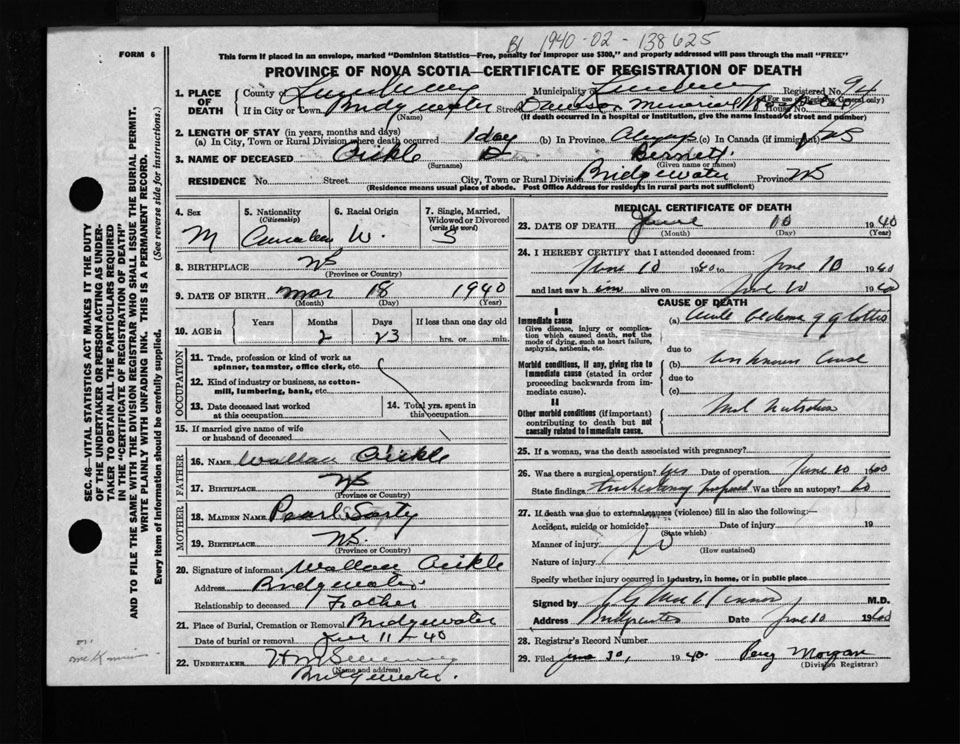 B1 1940-02-138625
FORM 6
This form if placed in an envelope, marked "Dominion Statistics—Free, penalty for improper use $300," and properly addressed will pass through the mail "FREE"
PROVINCE OF NOVA SCOTIA—CERTIFICATE OF REGISTRATION OF DEATH
1. PLACE OF DEATH
County of Lunenburg Municipality of Lunenburg Registered No. 94
(For use of Registrar General only)
If in City or Town Bridgewater Street Dawson Memorial Hospital House No.
(Name) (If death occurred in a hospital or institution, give the name instead of street and number)
2. LENGTH OF STAY (in years, months and days)
(a) In City, Town or Rural Division where death occurred 1 day (b) In Province Always (c) In Canada (if immigrant)
3. NAME OF DECEASED Bernett
(Surname) (Given name or names)
RESIDENCE No. Street City, Town or Rural Division Bridgewater Province NS
(Residence means usual place of abode. Post Office Address for residents in rural parts not sufficient)
4. Sex
M
5. Nationality
(Citizenship)
Canadian
6. Racial Origin
W.
7. Single, Married, Widowed or Divorced
(write the word)
S
8. BIRTHPLACE NS
(Province or Country)
9. DATE OF BIRTH Mar 18 1940
(Month) (Day) (Year)
10. AGE in Years Months Days If less than one day old
2 23 hrs. or min.
OCCUPATION
11. Trade, profession or kind of work as spinner, teamster, office clerk, etc.
12. Kind of industry or business, as cotton-mill, lumbering, bank, etc.
13. Date deceased last worked at this occupation
14. Total yrs. spent in this occupation
15. If married give name of wife or husband of deceased
FATHER
16. Name Wallace
17. Birthplace NS
(Province or Country)
MOTHER
18. Maiden Name Pearl Sarty
19. Birthplace NS.
(Province or Country)
20. Signature of informant Wallace
Address Bridgewater
Relationship to deceased Father
21. Place of Burial, Cremation or Removal Bridgewater
Date of burial or removal June 11 40
22. UNDERTAKER
(Name and address)
Bridgewater.
MEDICAL CERTIFICATE OF DEATH
23. DATE OF DEATH June 10 1940
(Month) (Day) (Year)
24. I HEREBY CERTIFY that I attended deceased from:
June 10 1940 to June 10 1940
and last saw h im alive on June 10 1940
CAUSE OF DEATH
I
Immediate cause
Give disease, injury or complication which caused death, not the mode of dying, such as heart failure, asphyxia, asthenia, etc.
(a) Acute Oedema of glottis
due to
Morbid conditions, if any, giving rise to immediate cause (stated in order proceeding backwards from immediate cause).
(b) unknown cause
due to
(c)
II
Other morbid conditions (if important) contributing to death but not causally related to immediate cause.
Mal nutrition
25. If a woman, was the death associated with pregnancy?
26. Was there a surgical operation? Yes Date of operation June 10 1940
State findings Was there an autopsy? No
27. If death was due to external causes (violence) fill in also the following:—
Accident, suicide or homicide? Date of injury 19
(State which)
Manner of injury
(How sustained)
Nature of injury
Specify whether injury occurred in industry, in home, or in public place
Signed by M.D.
Address Bridgewater Date June 10 1940
28. Registrar's Record Number
29. Filed June 30, 1940. Percy Morgan
(Division Registrar)
SEC. 46—VITAL STATISTICS ACT MAKES IT THE DUTY
OF THE UNDERTAKER OR PERSON ACTING AS UNDER-
TAKER TO OBTAIN ALL THE PARTICULARS REQUIRED
IN THE "CERTIFICATE OF REGISTRATION OF DEATH"
AND TO FILE THE SAME WITH THE DIVISION REGISTRAR WHO SHALL ISSUE THE BURIAL PERMIT.
WRITE PLAINLY WITH UNFADING INK. THIS IS A PERMANENT RECORD.
Every item of Information should be carefully supplied. (See reverse side for instructions.)